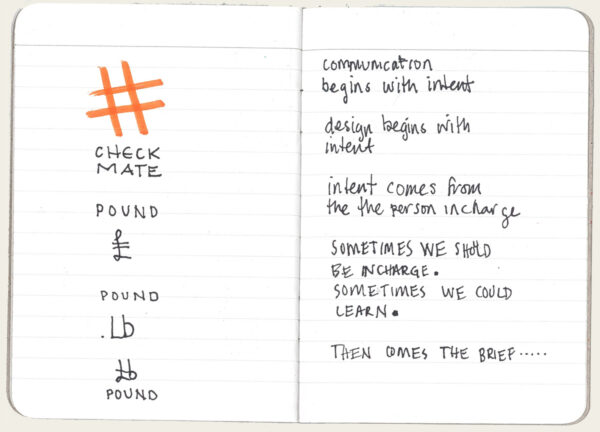 #
CHECK
MATE
POUND
£
POUND
.Lb
℔
POUND
communication
begins with intent
design begins with
intent
intent comes from
the the person incharge
SOMETIMES WE SHOLD
BE INCHARGE.
SOMETIMES WE COULD
LEARN.
THEN COMES THE BRIEF.....